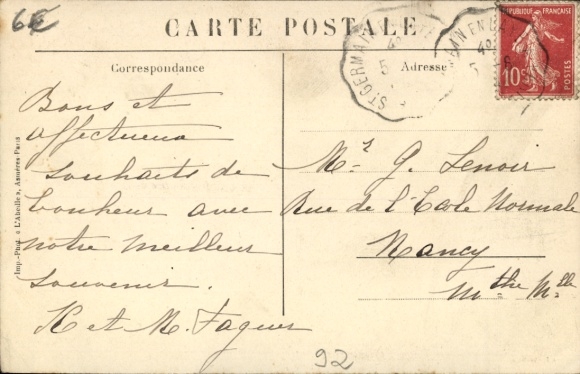 6€
CARTE POSTALE
Correspondance
Adresse
RÉPUBLIQUE FRANÇAISE
10c
POSTES
ST GERMAIN
4e
5
Bons et
affectueux
souhaits de
bonheur avec
notre meilleur
souvenir.
K et M. Faguer
Mr G. Lenoir
Rue de l'Ecole Normale
Nancy
Mthe Mlle
Imp.-Phot. « L'Abeille », Asnières-Paris
92